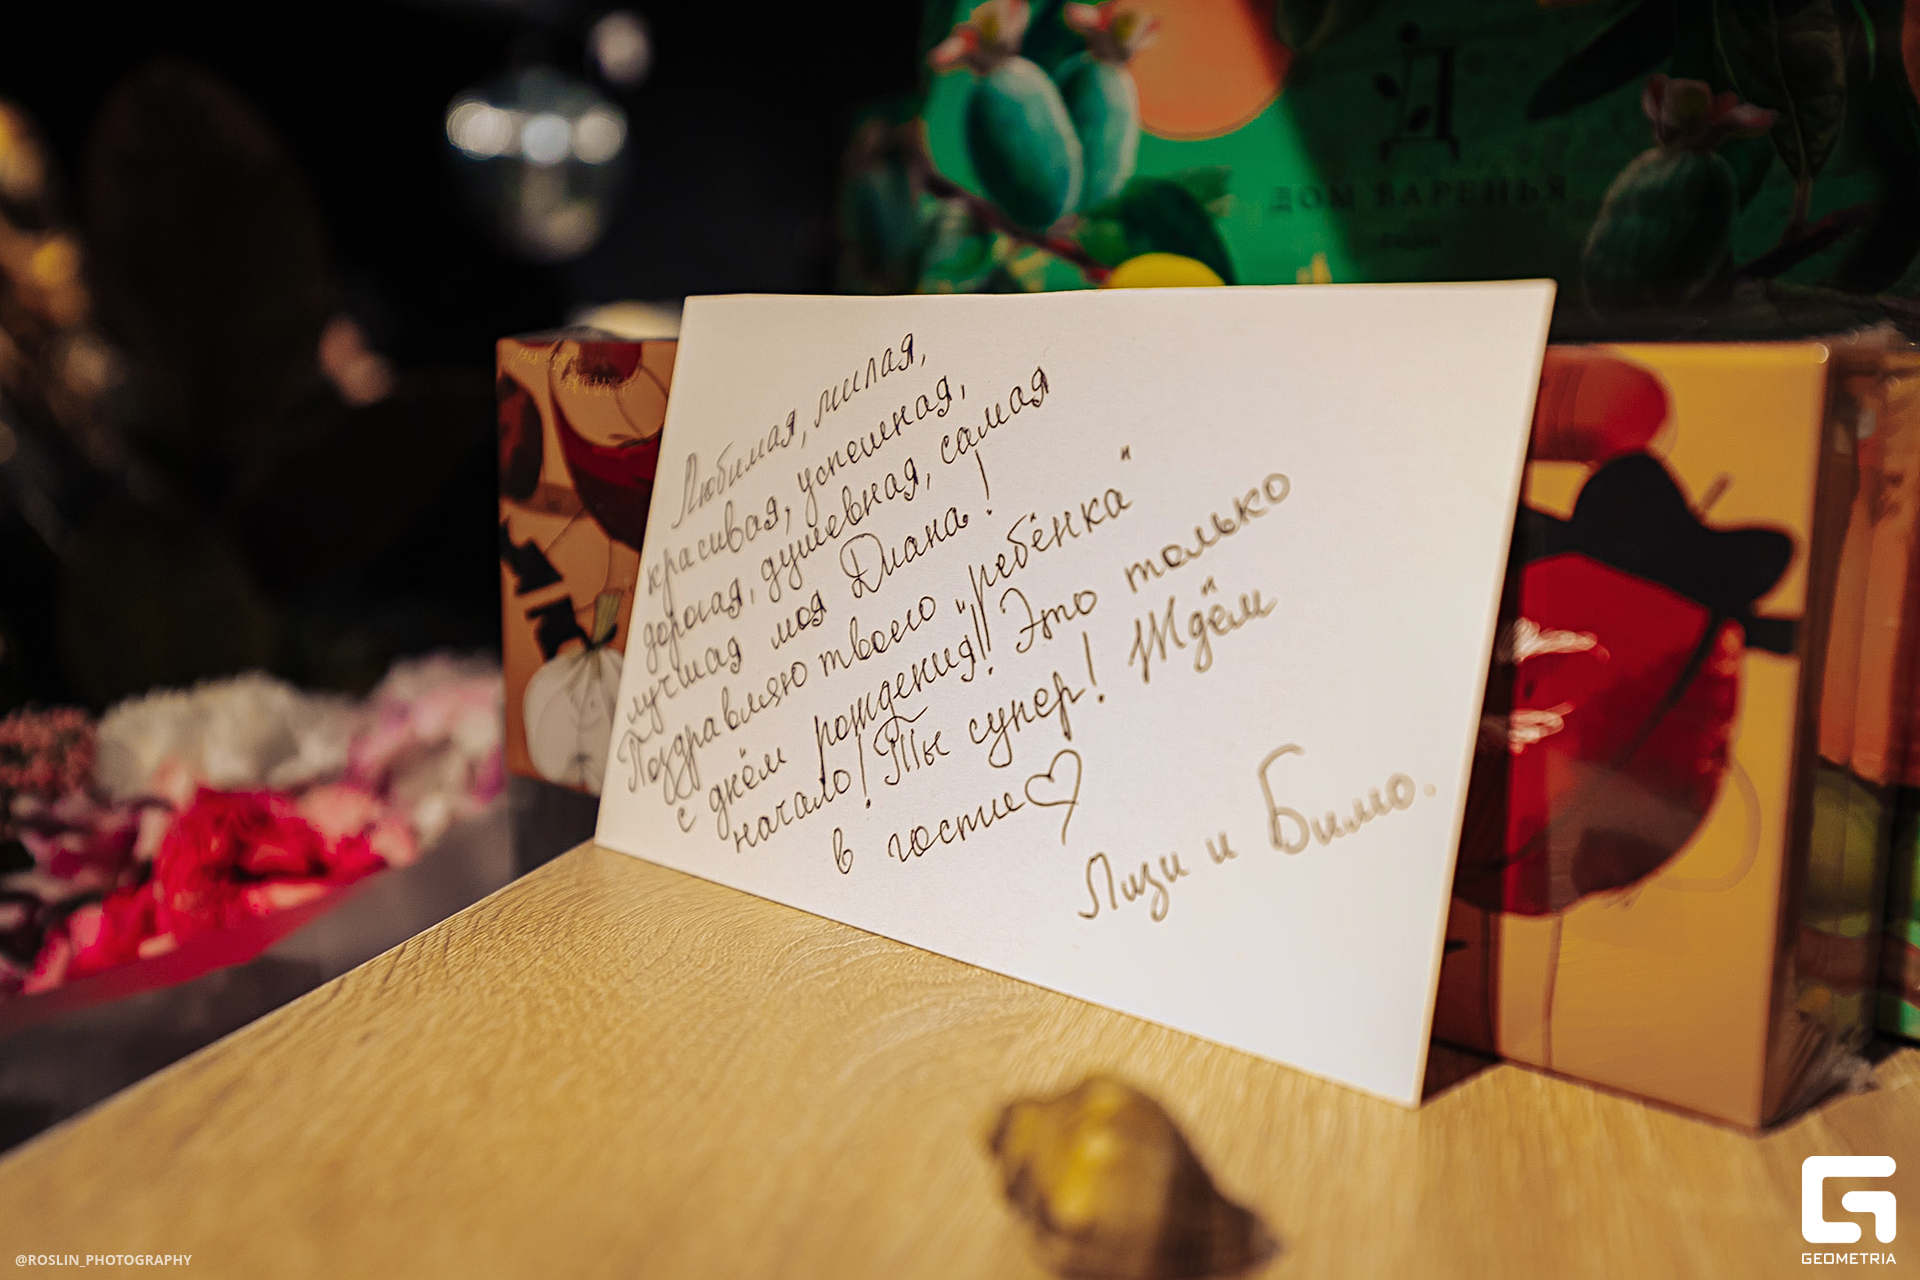 ДОМ ВАРЕНЬЯ
Любимая, милая,
красивая, успешная,
дорогая, душевная, самая
лучшая моя Диана!
Поздравляю твоего "ребёнка"
с днём рождения!! Это только
начало! Ты супер! Ждём
в гости♡
Лизи и Бимо.
@ROSLIN_PHOTOGRAPHY
GEOMETRIA